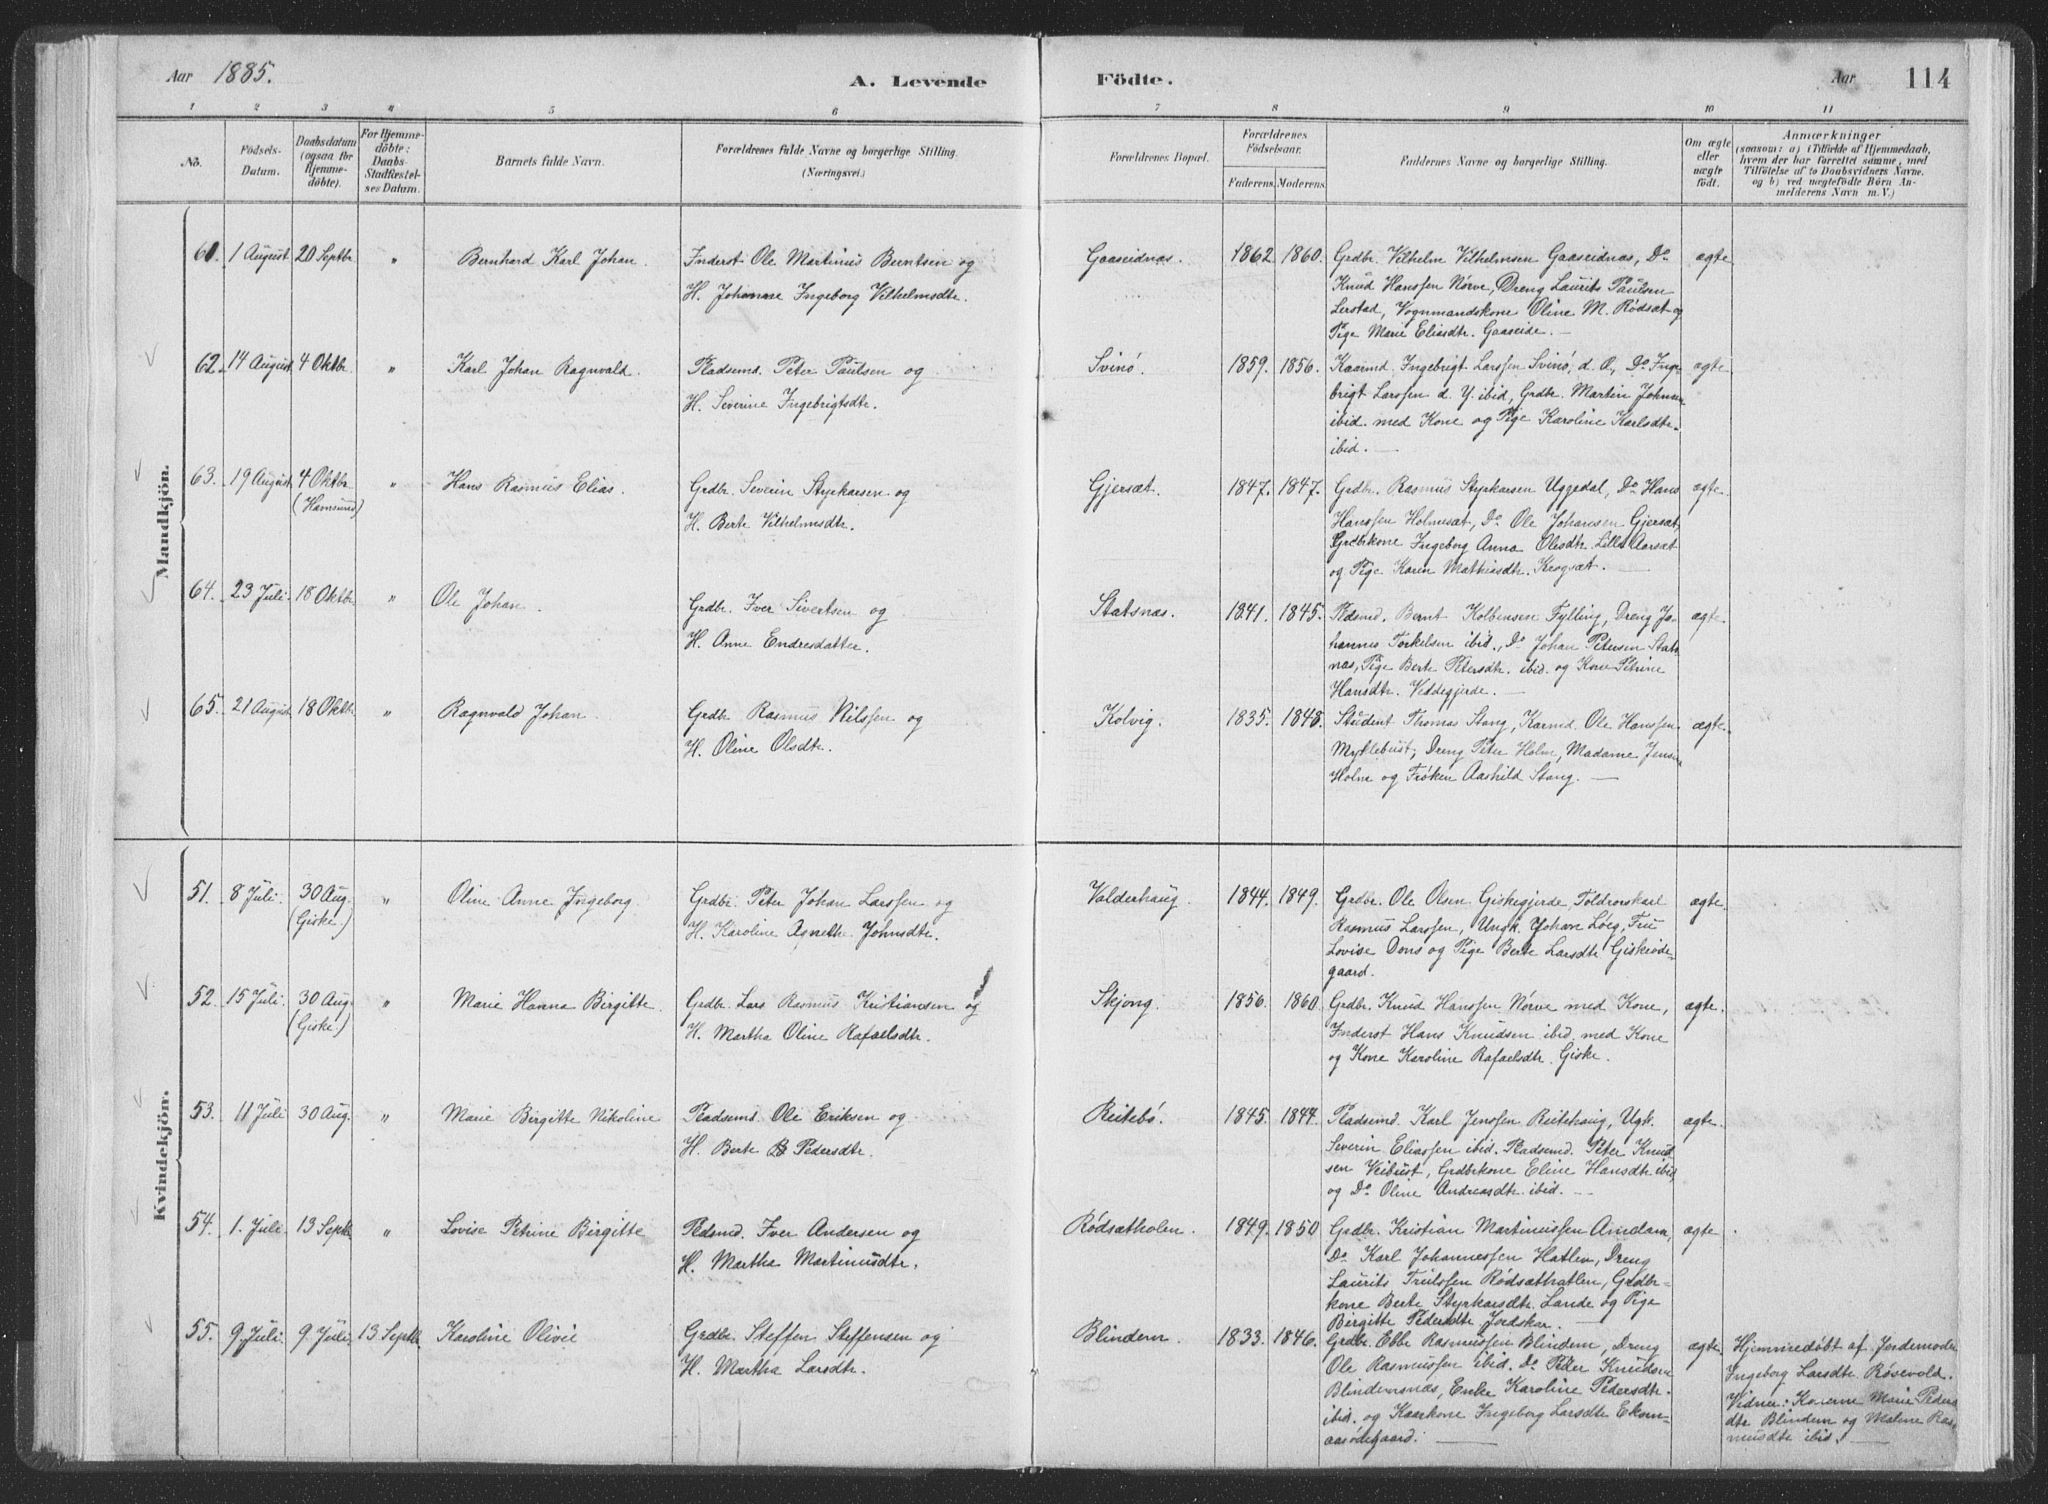 Aar 1885.
A. Levende Födte.
Aar 114
1 2 3 4 5 6 7 8 9 10 11
No.
Födsels-Datum.
Daabsdatum (ogsaa for Hjemme-döbte).
For Hjemme-döbte: Daabs-Stadfæstel-ses Datum.
Barnets fulde Navn.
Forældrenes fulde Navne og borgerlige Stilling. (Næringsvei.)
Forældrenes Bopæl.
Forældrenes Födselsaar.
Faderens. Moderens.
Faddernes Navne og borgerlige Stilling.
Om ægte eller uægte födt.
Anmærkninger
(saasom: a) i Tilfælde af Hjemmedaab, hvem der har forrettet samme, med Tilföielse af to Daabsvidners Navne. og b) ved uægtefödte Börn An-melderens Navn m. V.)
Mandkjön.
61. 1 August 20 Septbr. " Bernhard Karl Johan. Inderst Ole Martinus Berntsen og Gaaseidnæs. 1862 1860. Grdbr. Vilhelm Vilhelmsen Gaaseidnæs, Do ægte
H. Johanne Ingeborg Vilhelmsdtr. Knud Hanssen Nørve, Dreng Laurits Paulsen
Lerstad, Vognmandskone Oline M. Rødsæt og
Pige Marie Eliasdtr. Gaaseide. —
62. 14 August. 4 Oktbr. " Karl Johan Ragnvald. Pladsmd. Peter Paulsen og Svinö. 1859. 1856. Kaarmd. Ingebrigt Larssen Svinö, d. Æ, Do Inge- ægte
H. Severine Ingebrigtsdtr. brigt Larssen d. Y. ibid, Grdbr. Martin Johnsen
ibid. med Kone og Pige Karoline Karlsdtr.
ibid. —
63. 19 August. 4 Oktbr. (Hamsund) " Hans Rasmus Elias. Grdbr. Severin Styrkarsen og Gjersæt. 1847. 1847. Grdbr. Rasmus Styrkarsen Uggedal, Do Hans ægte
H. Berte Vilhelmsdtr. Hanssen Holmesæt, Do Ole Johansen Gjersæt
Grdbrkone Ingeborg Anna Olesdtr. Lille Aarsæt
og Pige Karen Mathiasdtr. Krogsæt. —
64. 23 Juli. 18 Oktbr. " Ole Johan. Grdbr. Iver Sivertsen og Statsnæs. 1841. 1845. Pladsmd. Bernt Kolbensen Fylling, Dreng Jo- ægte
H. Anne Endresdatter. hannes Torkelsen ibid., Do Johan Petersen Stats
næs, Pige Berte Petersdtr. ibid. og Kone Petrine
Hansdtr. Veddegjerde. —
65. 21 August 18 Oktbr. " Ragnvald Johan. Grdbr. Rasmus Nilssen og Kolvig. 1835. 1848. Student Thomas Stang, Kaarmd. Ole Hanssen ægte
H. Oline Olsdtr. Myklebust, Dreng Peter Holm, Madame Jensine
Holm og Frøken Aashild Stang. —
Kvindekjön.
51. 8 Juli. 30 Aug. (Giske.) " Oline Anne Ingeborg Grdbr. Peter Johan Larssen og Valderhaug. 1844. 1849. Grdbr. Ole Olsen Giskegjerde, Toldrorskarl ægte
H. Karoline Agnethe Johnsdtr. Rasmus Larssen, Ungk. Johan Löeg, Fru
Lovise Dons og Pige Berte Larsdtr Giskeöde-
gaard.
52. 15 Juli. 30 Aug. (Giske.) " Marie Hanna Birgitte. Grdbr. Lars Rasmus Kristiansen og Skjong. 1856. 1860. Grdbr. Knud Hanssen Nörve med Kone, ægte.
H. Martha Oline Rafaelsdtr. Inderst Hans Knudsen ibid. med Kone
og Kone Karoline Rafaelsdtr. Giske.
53. 11 Juli 30 Aug. " Marie Birgitte Nikoline Pladsemd. Ole Eriksen og Reitebö. 1845. 1844. Pladsemd. Karl Jenssen Reitehaug, Ugk. ægte.
H. Berte Pedersdtr. Severin Eliassen ibid. Pladsemd. Peter Knud
sen Veibust, Grdbrkone Eline Hansdtr. ibid,
og Do Oline Andreasdtr. ibid. —
54. 1. Juli. 13 Septbr. " Lovise Petrine Birgitte Pladsmd. Iver Andersen og Rödsætholen. 1849. 1850 Grdbr. Kristian Martinussen Amdam, ægte
H. Martha Martinusdtr. Do Karl Johannessen Hatlen, Dreng
Laurits Trulssen Rödsæthatlen, Grdbr-
kone Berte Styrkarsdtr. Lande og Pige
Birgitte Pedersdtr Jordskar.
55. 9 Juli. 9 Juli. 13 Septbr. Karoline Olivie Grdbr. Steffen Steffensen og Blindem. 1833. 1846. Grdbr. Ebbe Rasmussen Blindem, Dreng ægte. Hjemmedöbt af Jordemoder
H. Martha Larsdtr. Ole Rasmussen ibid. Do Peder Knudsen Ingeborg Larsdtr. Rösevold.
Blindemsnæs, Enke Karoline Pedersdtr. Vidner: Konerne Marie Peders
ibid. og Kaarkone Ingeborg Larsdtr Eksen- dtr Blindem og Malene Ras
aasödegaard. — musdtr ibid. —